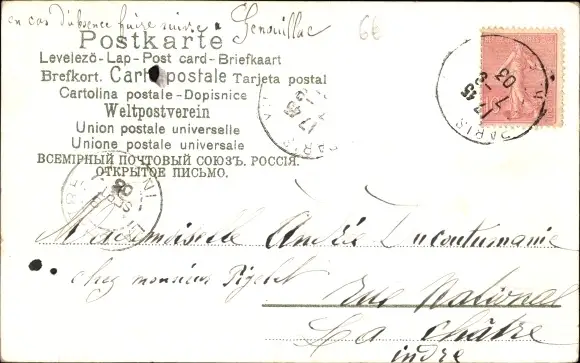 en cas d'absence faire suivre à Genouillac
66
Postkarte
Levelező-Lap-Post card-Briefkaart
Brefkort. Carte postale Tarjeta postal
Cartolina postale-Dopisnice
Weltpostverein
Union postale universelle
Unione postale universale
ВСЕМІРНЫЙ ПОЧТОВЫЙ СОЮЗЪ. РОССІЯ.
ОТКРЫТОЕ ПИСЬМО.
PARIS
17 45
03
PARIS
17 45
Mademoiselle Andrée
chez monsieur Pigelet
rue National
La Châtre
indre